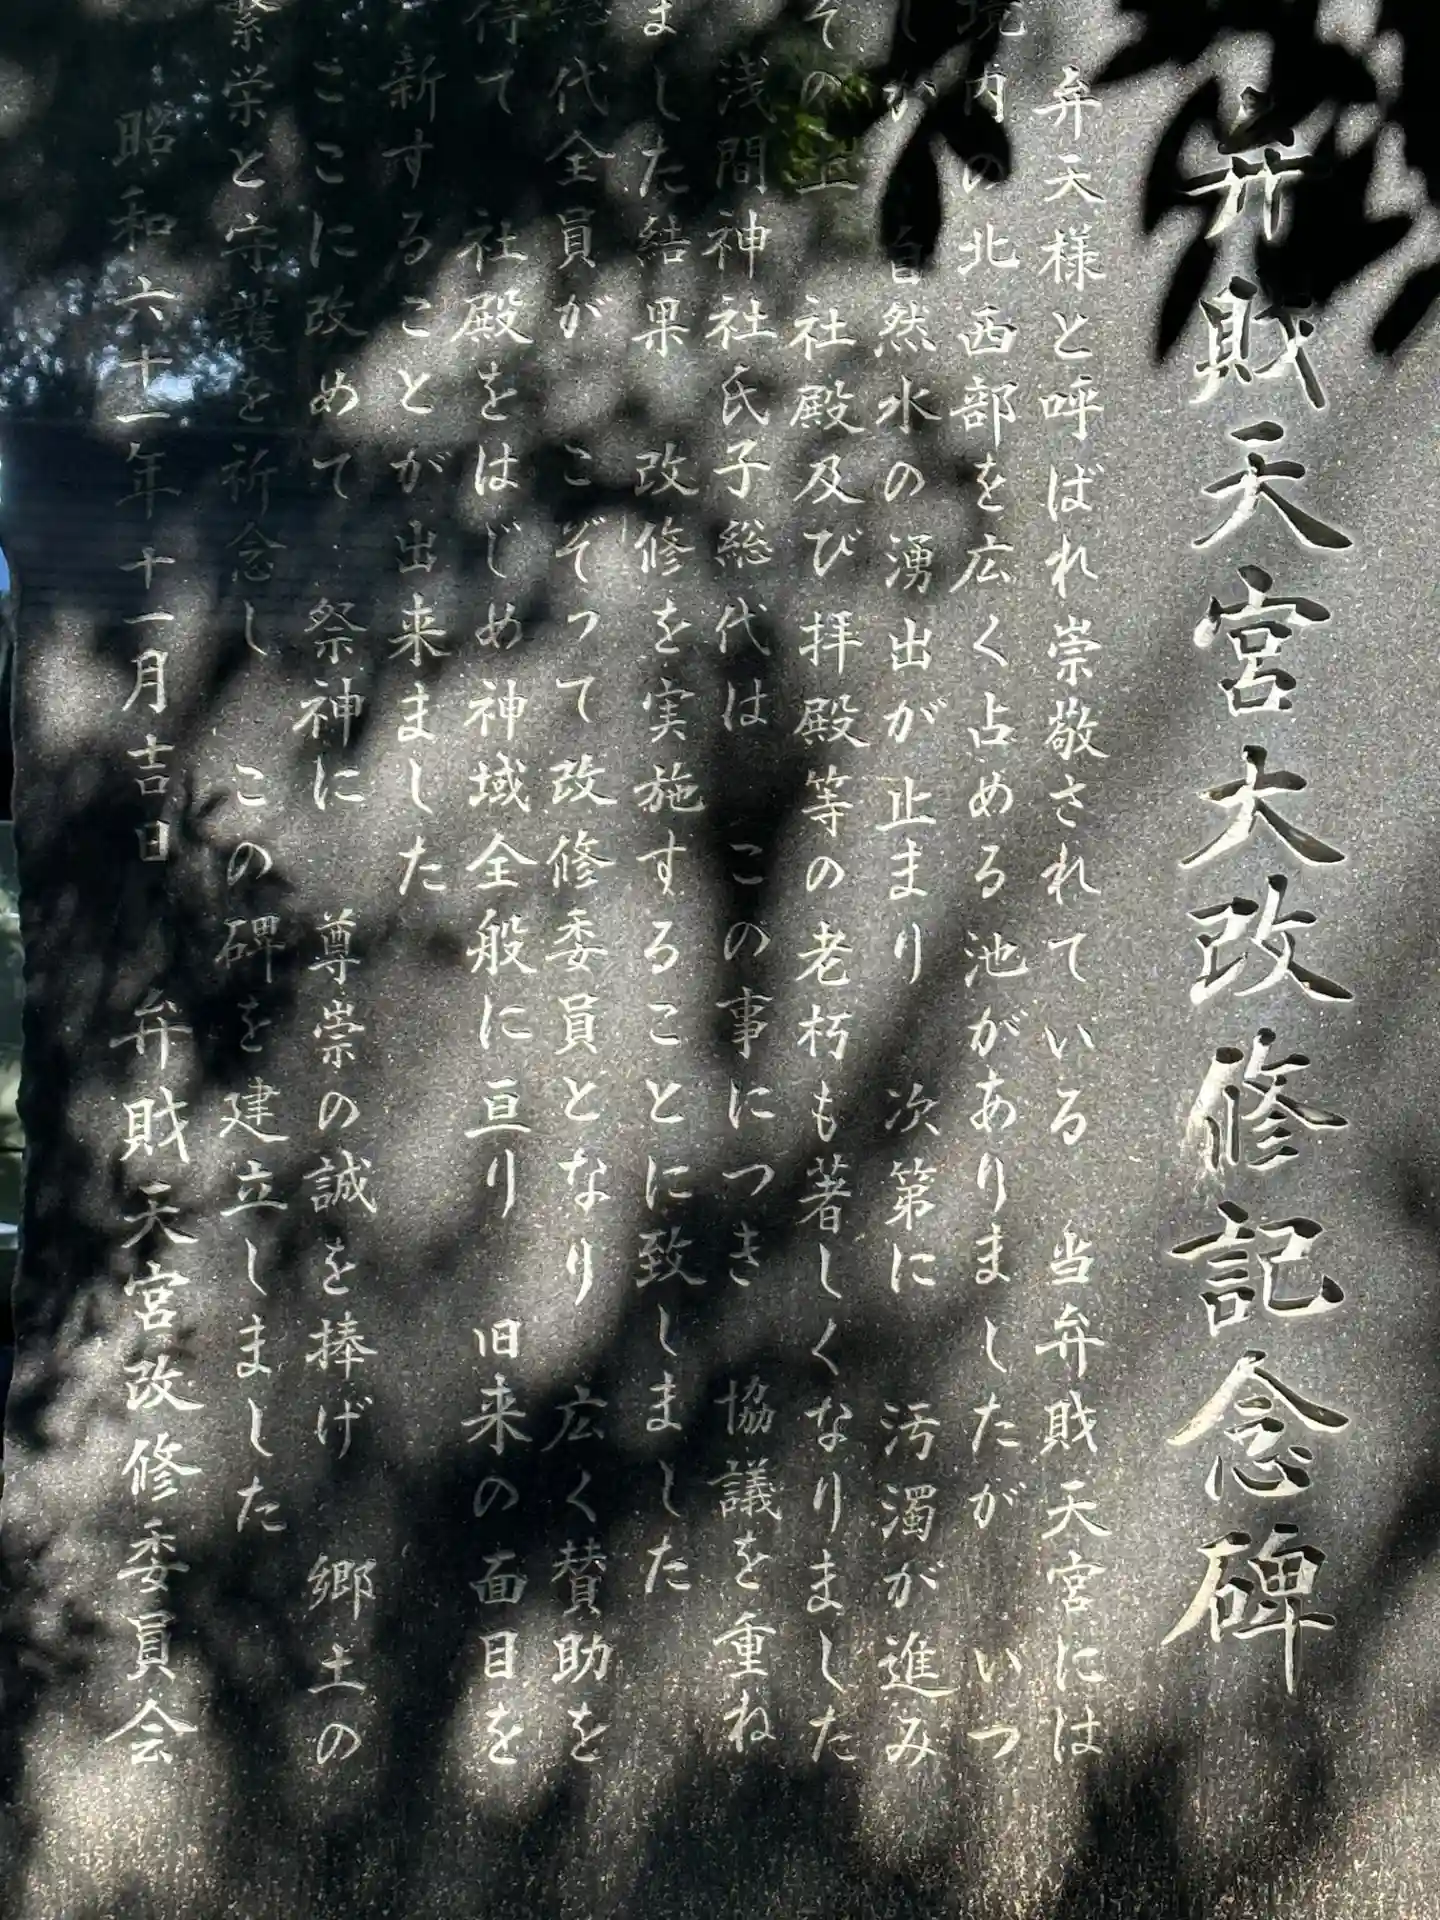 弁財天宮大改修記念碑
弁天様と呼ばれ崇敬されている 当弁財天宮には
境内の北西部を広く占める池がありましたが いつ
しか 自然水の湧出が止まり 次第に 汚濁が進み
その上 社殿及び拝殿等の老朽も著しくなりました
浅間神社氏子総代は この事につき 協議を重ね
ました結果 改修を実施することに致しました
総代全員が こぞって改修委員となり 広く賛助を
得て 社殿をはじめ神域全般に亘り 旧来の面目を
新することが出来ました
ここに改めて 祭神に 尊崇の誠を捧げ 郷土の
繁栄と守護を祈念し この碑を建立しました
昭和六十一年十一月吉日 弁財天宮改修委員会